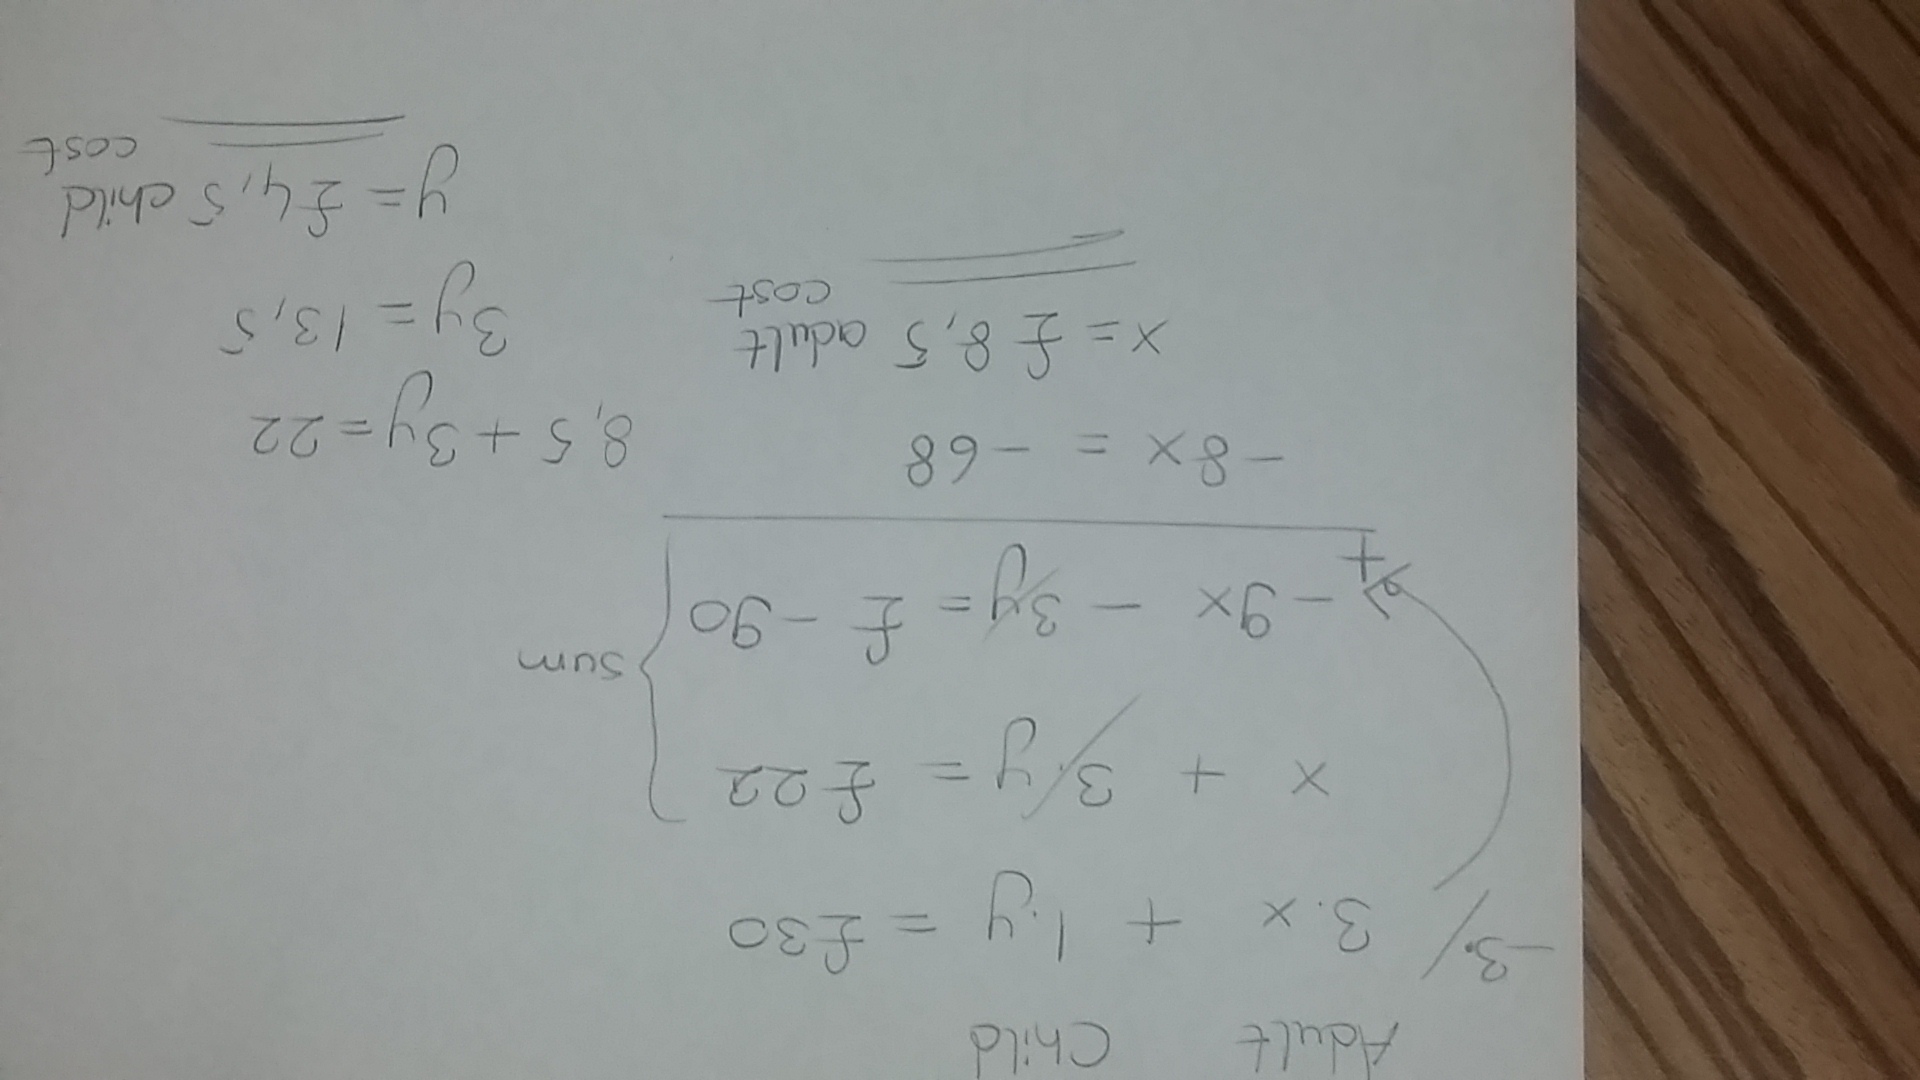 Adult Child
-3. / 3.x + 1.y = £30
x + 3.y = £22
-9x - 3y = £ -90
+
sum
-8x = -68
x = £ 8,5 adult
cost
8,5 + 3y = 22
3y = 13,5
y = £4,5 child
cost